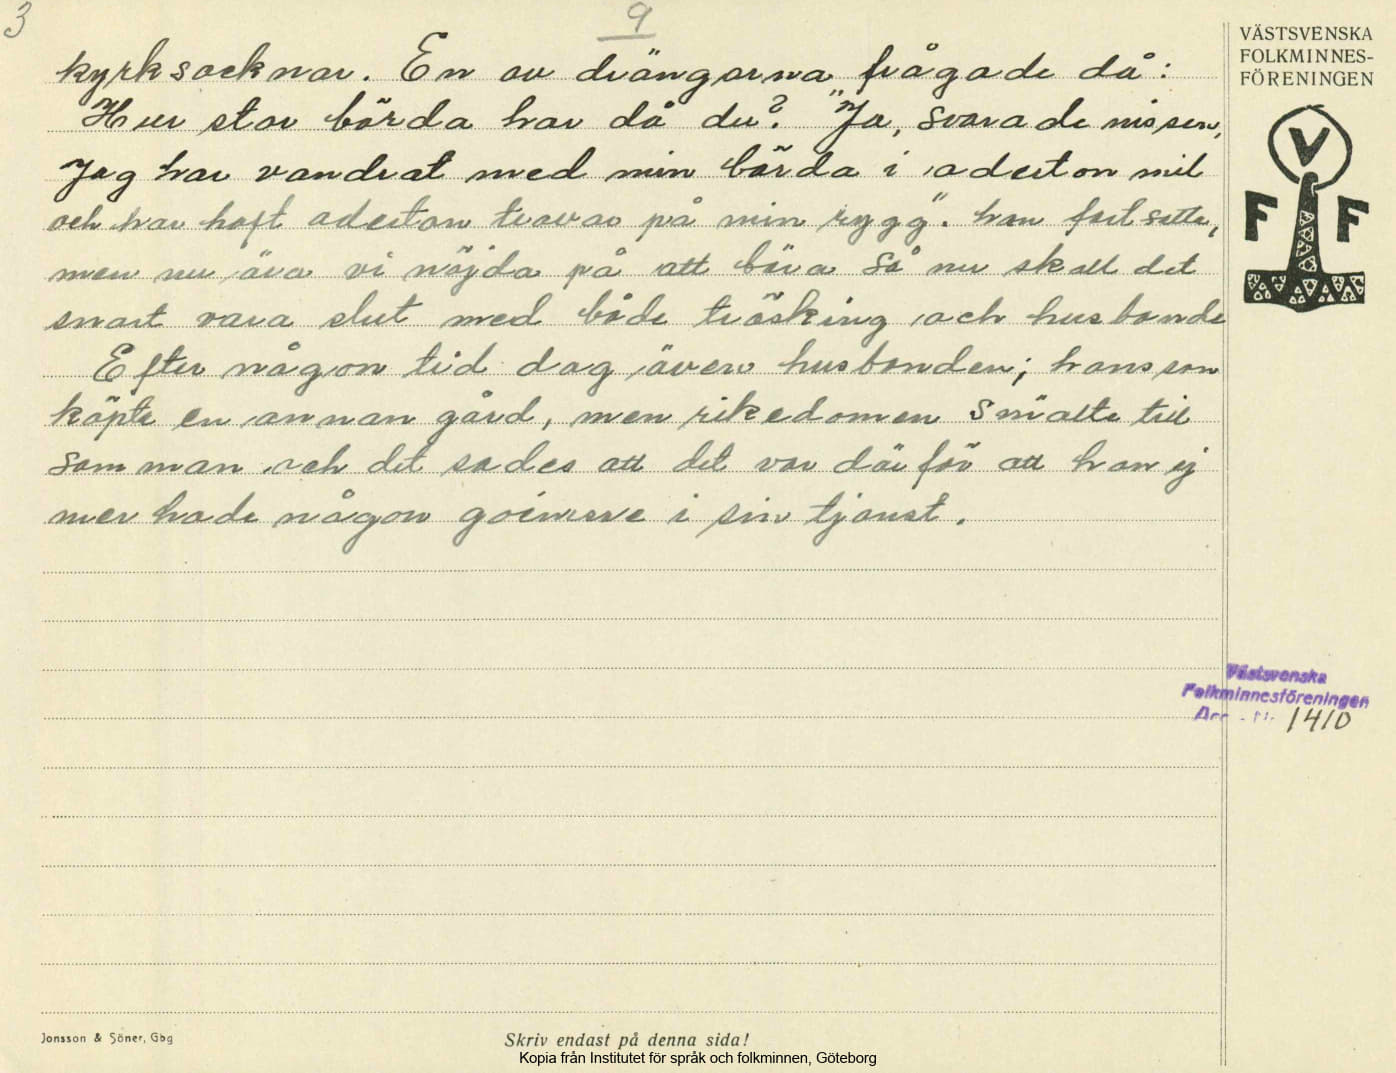 3
9
kyrksocknar. En av drängarna frågade då:
Hur stor börda har då du? "Ja, svarade nissen,
Jag har vandrat med min börda i aderton mil
och har haft aderton travar på min rygg". han fortsatte,
men nu ära vi nöjda på att bära så nu skall det
snart vara slut med både trösking och husbonde
Efter någon tid dog även husbonden; hans son
köpte en annan gård, men rikedomen smälte till
samman och det sades att det var därför att han ej
mer hade någon goinisse i sin tjänst.
VÄSTSVENSKA
FOLKMINNES-
FÖRENINGEN
V
F F
Västsvenska
Folkminnesföreningen
1410
Jonsson & Söner, Gbg
Skriv endast på denna sida!
Kopia från Institutet för språk och folkminnen, Göteborg